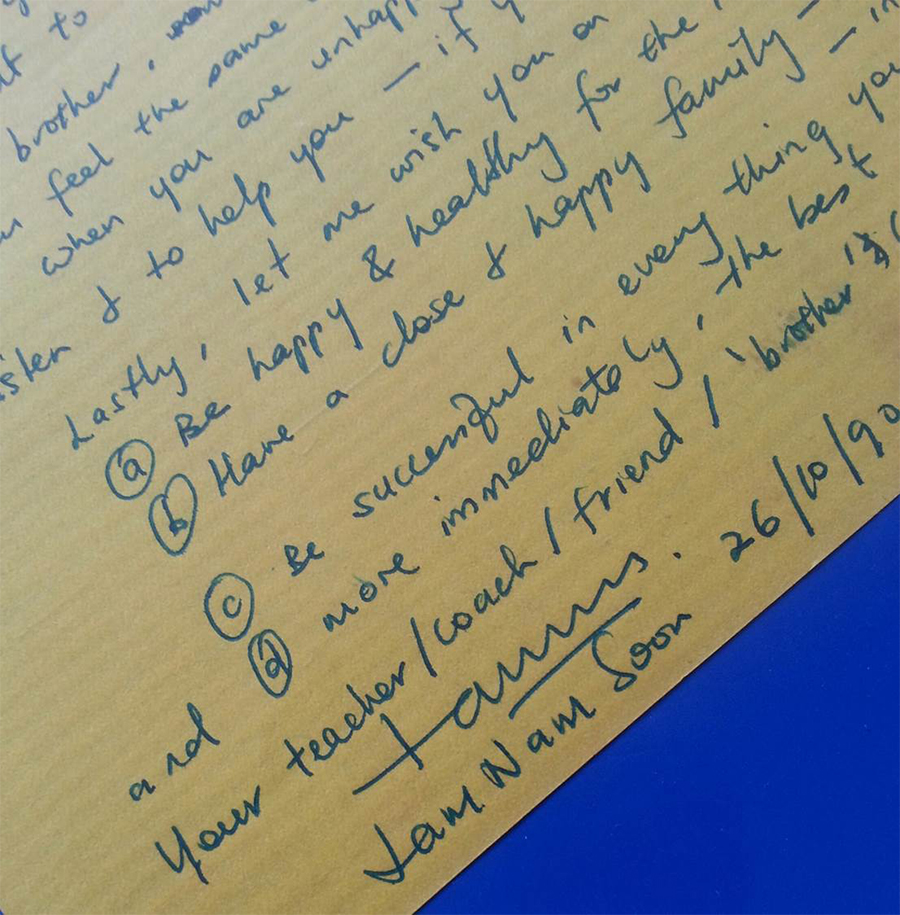 to
brother,
feel the same
when you are unhapp
& to help you – if y
Lastly, let me wish you on
ⓐ Be happy & healthy for the
ⓑ Have a close & happy family –
ⓒ Be successful in every thing you
and ⓓ more immediately, the best
Your teacher/coach/friend/'brother'
26/10/90
Lam Nam Soon